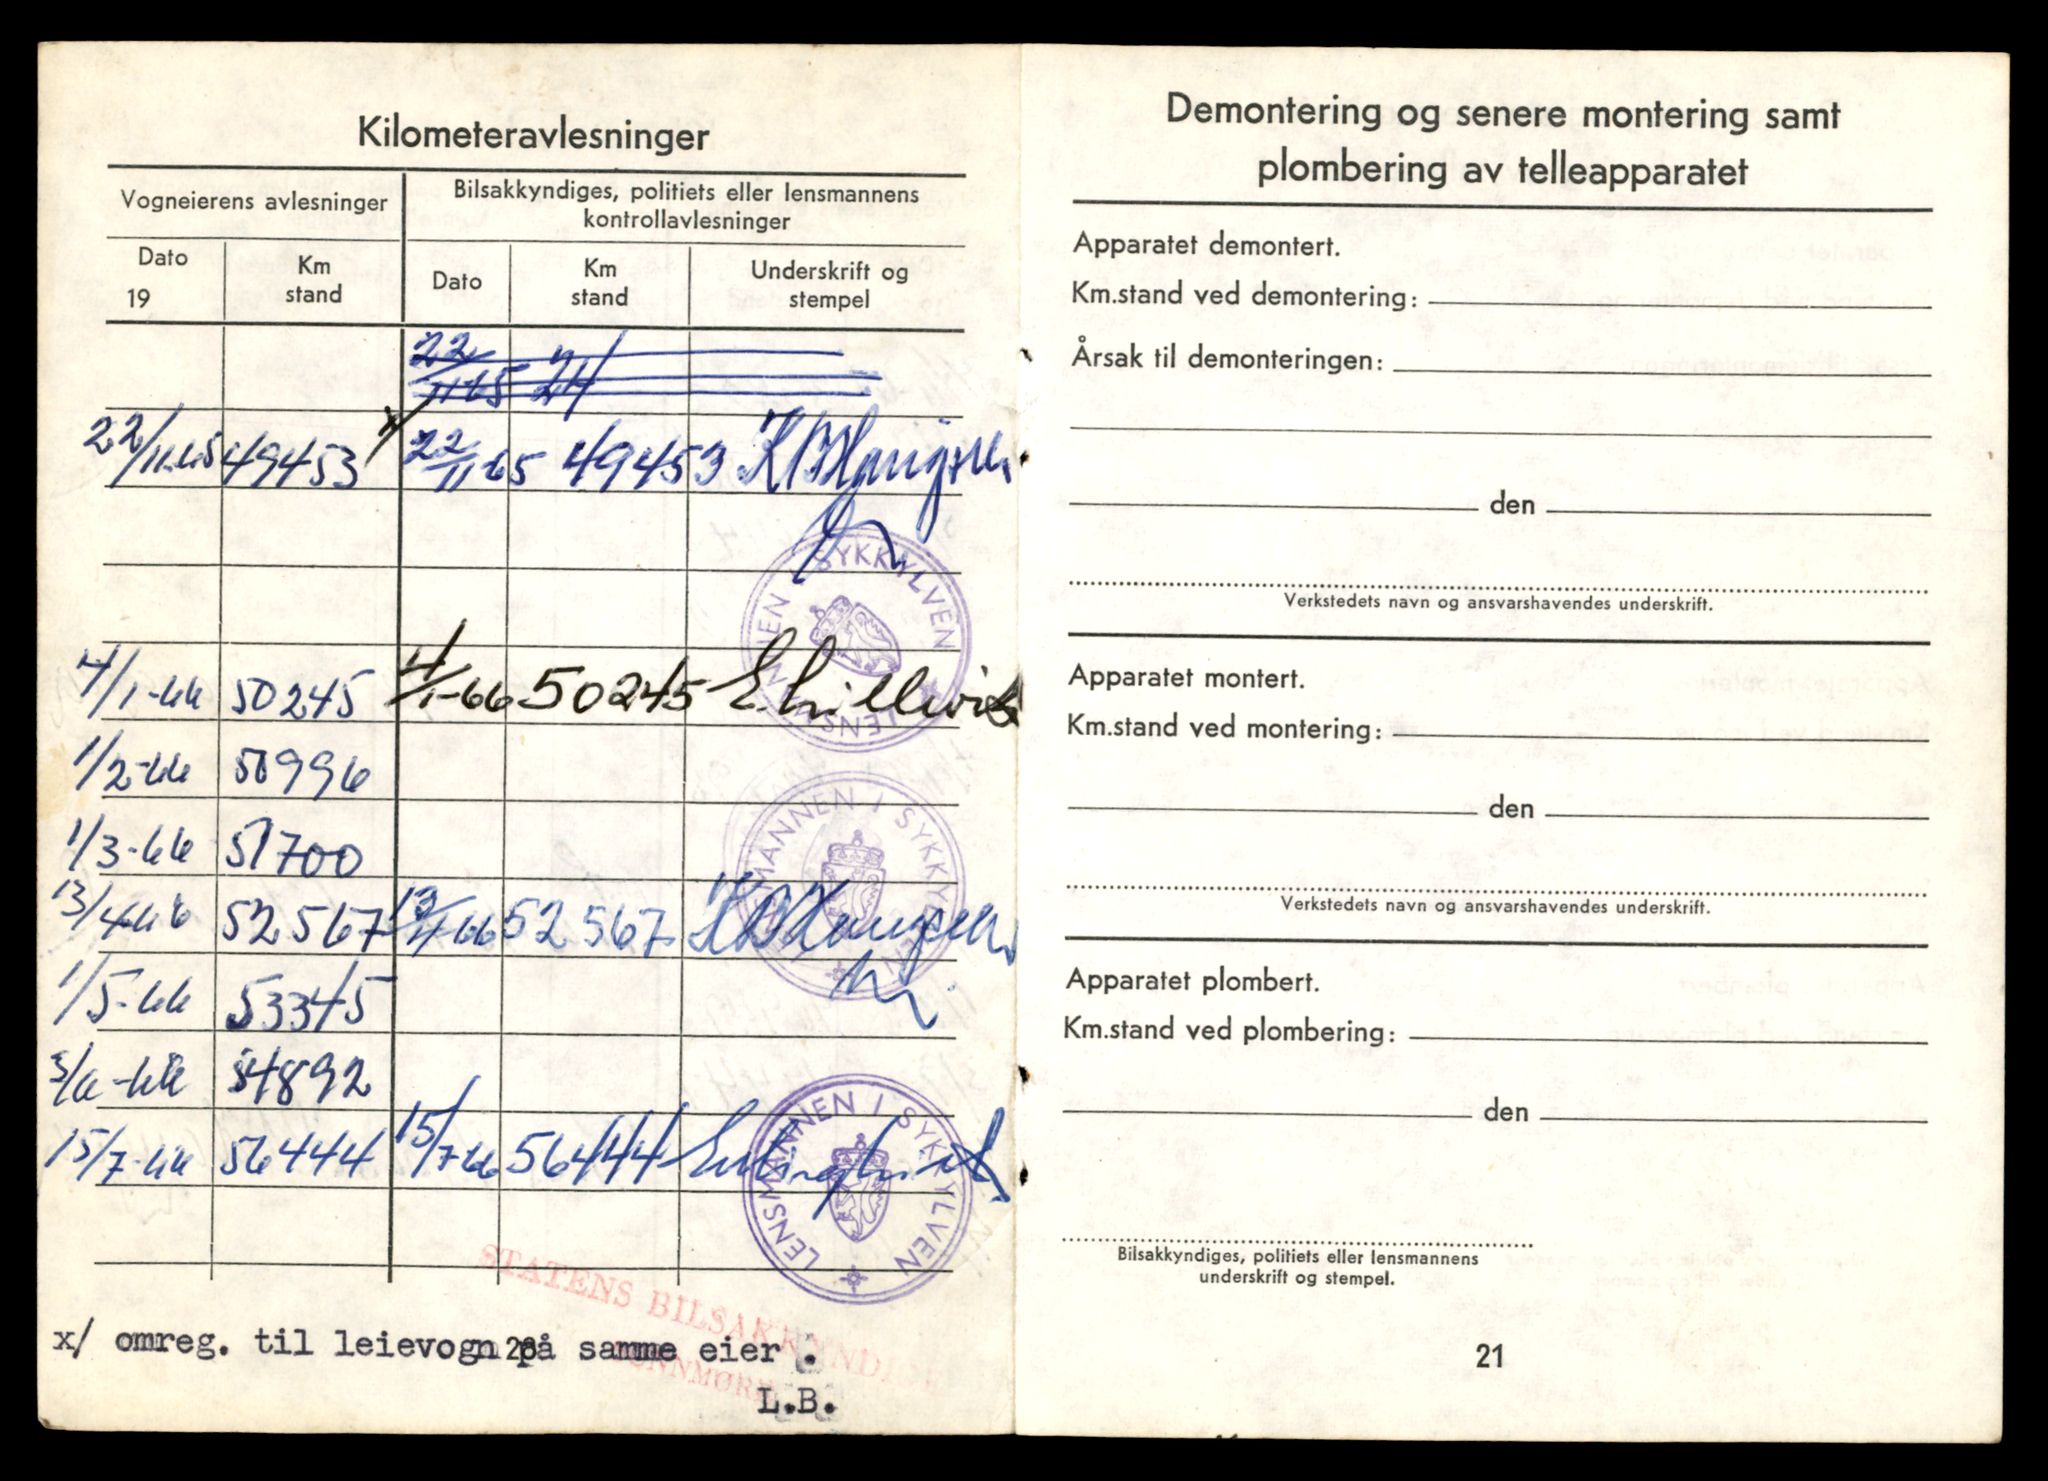 Kilometeravlesninger
Vogneierens avlesninger
Bilsakkyndiges, politiets eller lensmannens
kontrollavlesninger
Dato
19
Km
stand
Dato
Km
stand
Underskrift og
stempel
22/11-65 24
22/11-65 49453 x/ 22/11-65 49453
LENSMANNEN I SYKKYLVEN
4/1-66 50245 4/1-66 50245
1/2-66 50996
LENSMANNEN I SYKKYLVEN
1/3-66 51700
13/4-66 52567 13/4-66 52567
1/5-66 53345
3/6-66 54892
15/7-66 56444 15/7-66 56444
LENSMANNEN I SYKKYLVEN
STATENS BILSAKKYNDIGE
x/ omreg. til leievogn på samme eier .
20
L.B.
Demontering og senere montering samt
plombering av telleapparatet
Apparatet demontert.
Km.stand ved demontering:
Årsak til demonteringen:
den
Verkstedets navn og ansvarshavendes underskrift.
Apparatet montert.
Km.stand ved montering:
den
Verkstedets navn og ansvarshavendes underskrift.
Apparatet plombert.
Km.stand ved plombering:
den
Bilsakkyndiges, politiets eller lensmannens
underskrift og stempel.
21